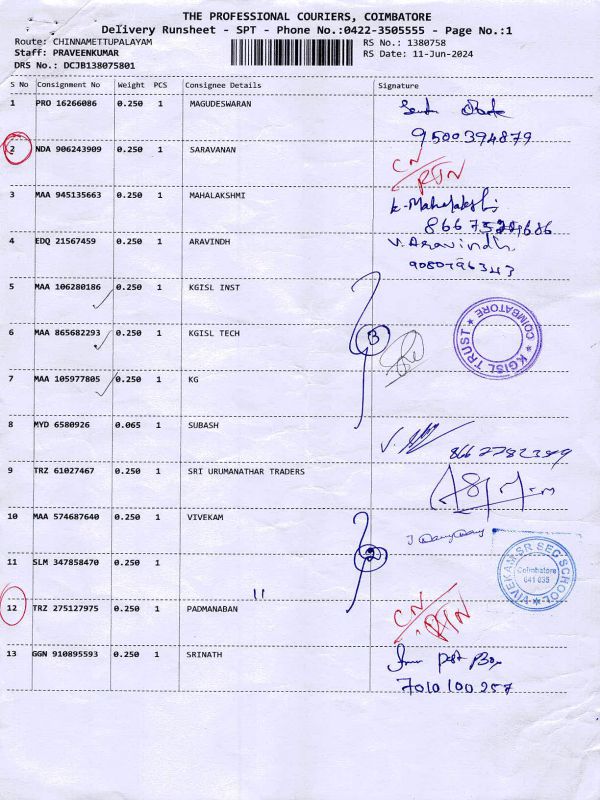 THE PROFESSIONAL COURIERS, COIMBATORE
Delivery Runsheet - SPT - Phone No.:0422-3505555 - Page No.:1
Route: CHINNAMETTUPALAYAM RS No.: 1380758
Staff: PRAVEENKUMAR RS Date: 11-Jun-2024
DRS No.: DCJB138075801
S No Consignment No Weight PCS Consignee Details Signature
1 PRO 16266086 0.250 1 MAGUDESWARAN
9500394879
2 NDA 906243909 0.250 1 SARAVANAN CN
RTN
3 MAA 945135663 0.250 1 MAHALAKSHMI K. Mahalakshmi
4 EDQ 21567459 0.250 1 ARAVINDH V. Aravindh
9080796343
5 MAA 106280186 0.250 1 KGISL INST
6 MAA 865682293 0.250 1 KGISL TECH 3
KGISL TRUST * COIMBATORE *
7 MAA 105977805 0.250 1 KG
8 MYD 6580926 0.065 1 SUBASH
9 TRZ 61027467 0.250 1 SRI URUMANATHAR TRADERS
10 MAA 574687640 0.250 1 VIVEKAM
2
VIVEKAM SR SEC SCHOOL
Coimbatore
641 035
11 SLM 347858470 0.250 1 "
12 TRZ 275127975 0.250 1 PADMANABAN CN
RTN
13 GGN 910895593 0.250 1 SRINATH
7010100257